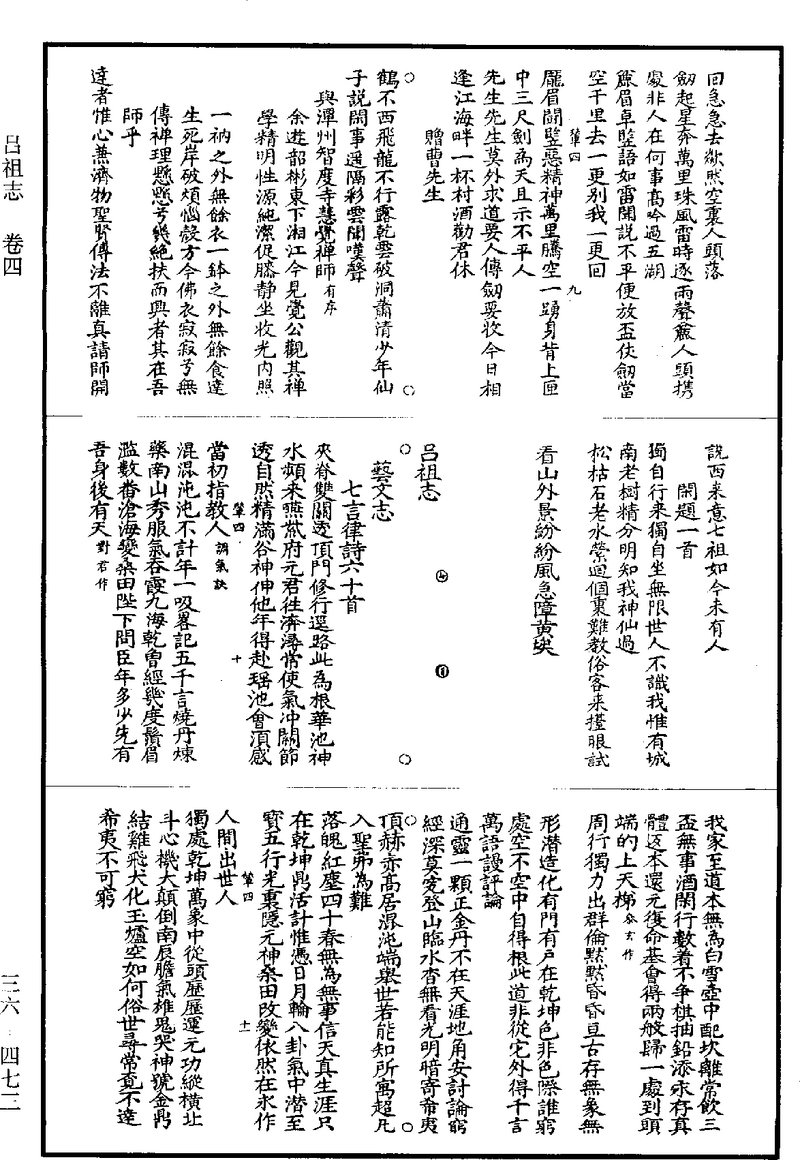 回急急去欻然空裏人頭落
劒起星奔萬里珠風雷時逐雨聲麄人頭携
處非人在何事高吟過五湖
麄眉卓竪語如雷聞說不平便放盃仗劒當
空千里去一更別我一更回
筆四 九
龐眉鬪竪惡精神萬里騰空一踴身背上匣
中三尺劍為天且示不平人
先生先生莫外求道要人傳劒要收今日相
逢江海畔一杯村酒勸君休
贈曹先生
鶴不西飛龍不行露乾雲破洞蕭清少年仙
子說閑事遥隔彩雲聞嘆聲
與潭州智度寺慧覺禪師有序
余遊韶郴東下湘江今見覺公觀其禪
學精明性源純潔促膝静坐收光内照
一衲之外無餘衣一鉢之外無餘食達
生死岸破煩惱殼方今佛衣寂寂兮無
傳禪理懸懸兮幾絶扶而興者其在吾
師乎
達者惟心兼濟物聖賢傳法不離真請師開
說西来意七祖如今未有人
閑題一首
獨自行来獨自坐無限世人不識我惟有城
南老樹精分明知我神仙過
松枯石老水縈迴個裏難教俗客来擡眼試
看山外景紛紛風急障黄埃
吕祖志
藝文志
七言律詩六十首
夾脊雙關透頂門修行逕路此為根華池神
水頻来嚥紫府元君往濟潯常使氣冲關節
透自然精滿谷神伸他年得赴瑶池會須感
筆四 十
當初指教人調氣訣
混混沌沌不計年一吸畧記五千言燒丹煉
藥南山秀服氣吞霞九海乾曾經幾度鬚眉
濫數番滄海變桑田陛下問臣年多少先有
吾身後有天對君作
我家至道本無為白雪壺中配坎離常飲三
盃無事酒閑行數着不争棋抽鉛添汞存真
體返本還元復命基會得兩般歸一處到頭
端的上天梯叅玄作
周行獨力出群倫默默昏昏亘古存無象無
形潜造化有門有戸在乾坤色非色際誰窮
處空不空中自得根此道非從它外得千言
萬語謾評論
通靈一顆正金丹不在天涯地角安討論窮
經深莫究登山臨水杳無看光明暗寄希夷
頂赫赤高居混沌端舉世若能知所寓超凡
入聖弗為難
落魄紅塵四十春無為無事信天真生涯只
在乾坤鼎活計惟憑日月輪八卦氣中潜至
寶五行光裏隱元神桑田改變依然在永作
人間出世人
筆四 十一
獨處乾坤萬象中從頭歷歷運元功縱橫北
斗心機大顛倒南辰膽氣雄鬼哭神號金鼎
結雞飛犬化玉爐空如何俗世尋常覓不達
希夷不可窮
吕祖志 卷四
三六 四七三